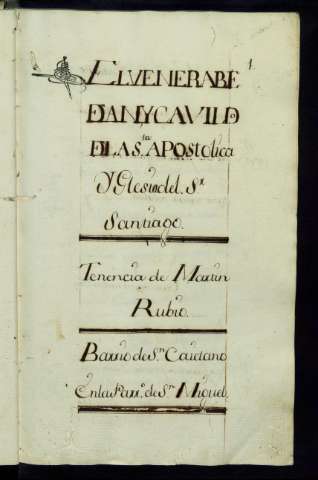 1.
EL VENERABE
DEAN Y CAVILDO
DE LA S.ta APOSTOlica
YGlesia del Sr.
Santiago.
Tenencia de Martin
Rubio.
Barrio de S.n Caietano
en la Parr.a de S.n Miguel,